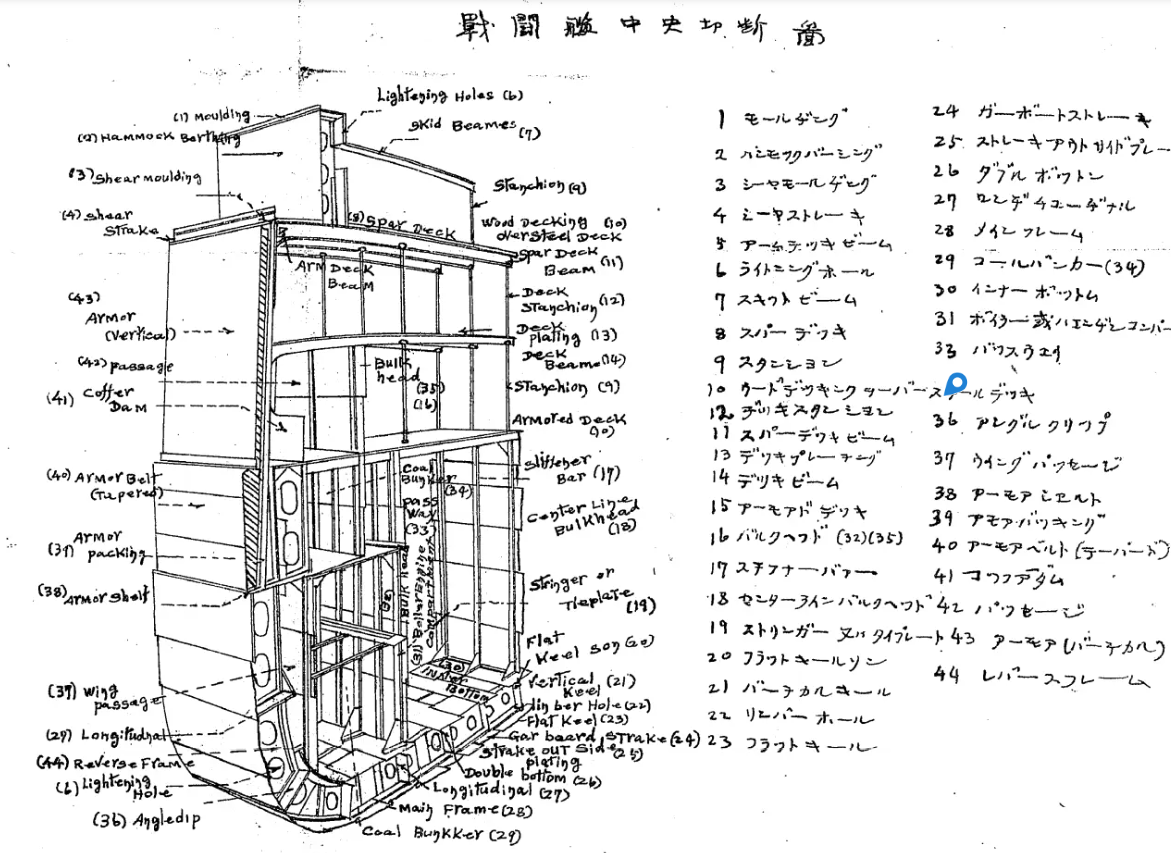 戰闘艦中央切断啚
Lightening Holes (6)
(1) Moulding
(2) Hammock Berthing
Skid Beames (7)
(3) Shear moulding
Stanchion (9)
(4) Shear
Strake
(8) Spar Deck
Wood Decking (10)
over Steel Deck
Spar Deck
Beam (11)
Arm Deck
Beam
Deck
Stanchion (12)
(43)
Armor
(Vertical)
Deck
plating (13)
Deck
Beame (14)
(42) passage
Bulk
head
(35)
(16)
Stanchion (9)
(41) Coffer
Dam
Armored Deck
Stiffener
Bar (17)
(40) Armor Belt
(Tapered)
Coal
Bunker
(34)
pass
Way
(33)
Center Line
Bulkhead
(18)
Armor
packing
(38) Armor Shelf
Bulk head
Stringer or
Tieplate
(19)
Flat
Keel Son (20)
(30)
Inner
Bottom
Vertical (21)
Keel
Wing
passage
Hole (22)
Flat Keel (23)
(29) Longitudnal
Gar board strake (24)
Strake out Side
plating (25)
(44) Reverse Frame
Double
bottom (26)
(6) Lightening
Hole
Longitudinal (27)
Main Frame (28)
(36) Angledip
Coal Bunkker (29)
1 モールヂング
2 ハンモックバーシング
3 シーヤモールヂング
4 シーヤストレーキ
5 アームデッキビーム
6 ライトニングホール
7 スキットビーム
8 スパーデッキ
9 スタンション
10 ウードデッキングオーバースチールデッキ
12 デッキスタンション
11 スパーデッキビーム
13 デッキプレーチング
14 デッキビーム
15 アーモアドデッキ
16 バルクヘッド (32)(35)
17 スチフナーバァー
18 センターラインバルクヘッド
19 ストリンガー又ハタイプレート
20 フラットキールソン
21 バーチカルキール
22 リンバーホール
23 フラットキール
24 ガーボートストレーキ
25 ストレーキアウトサイドプレー
26 ダブルボットン
27 ロンヂチユーヂナル
28 メインフレーム
29 コールバンカー(34)
30 インナーボットム
31 ボイラー或ハエンヂンコンパー
33 パッスウエイ
36 アングルクリップ
37 ウイングパッセージ
38 アーモアシエルト
39 アモアパッキング
40 アーモアベルト(テーパード)
41 コッファダム
42 パッセージ
43 アーモア(バーチカル)
44 レバースフレーム